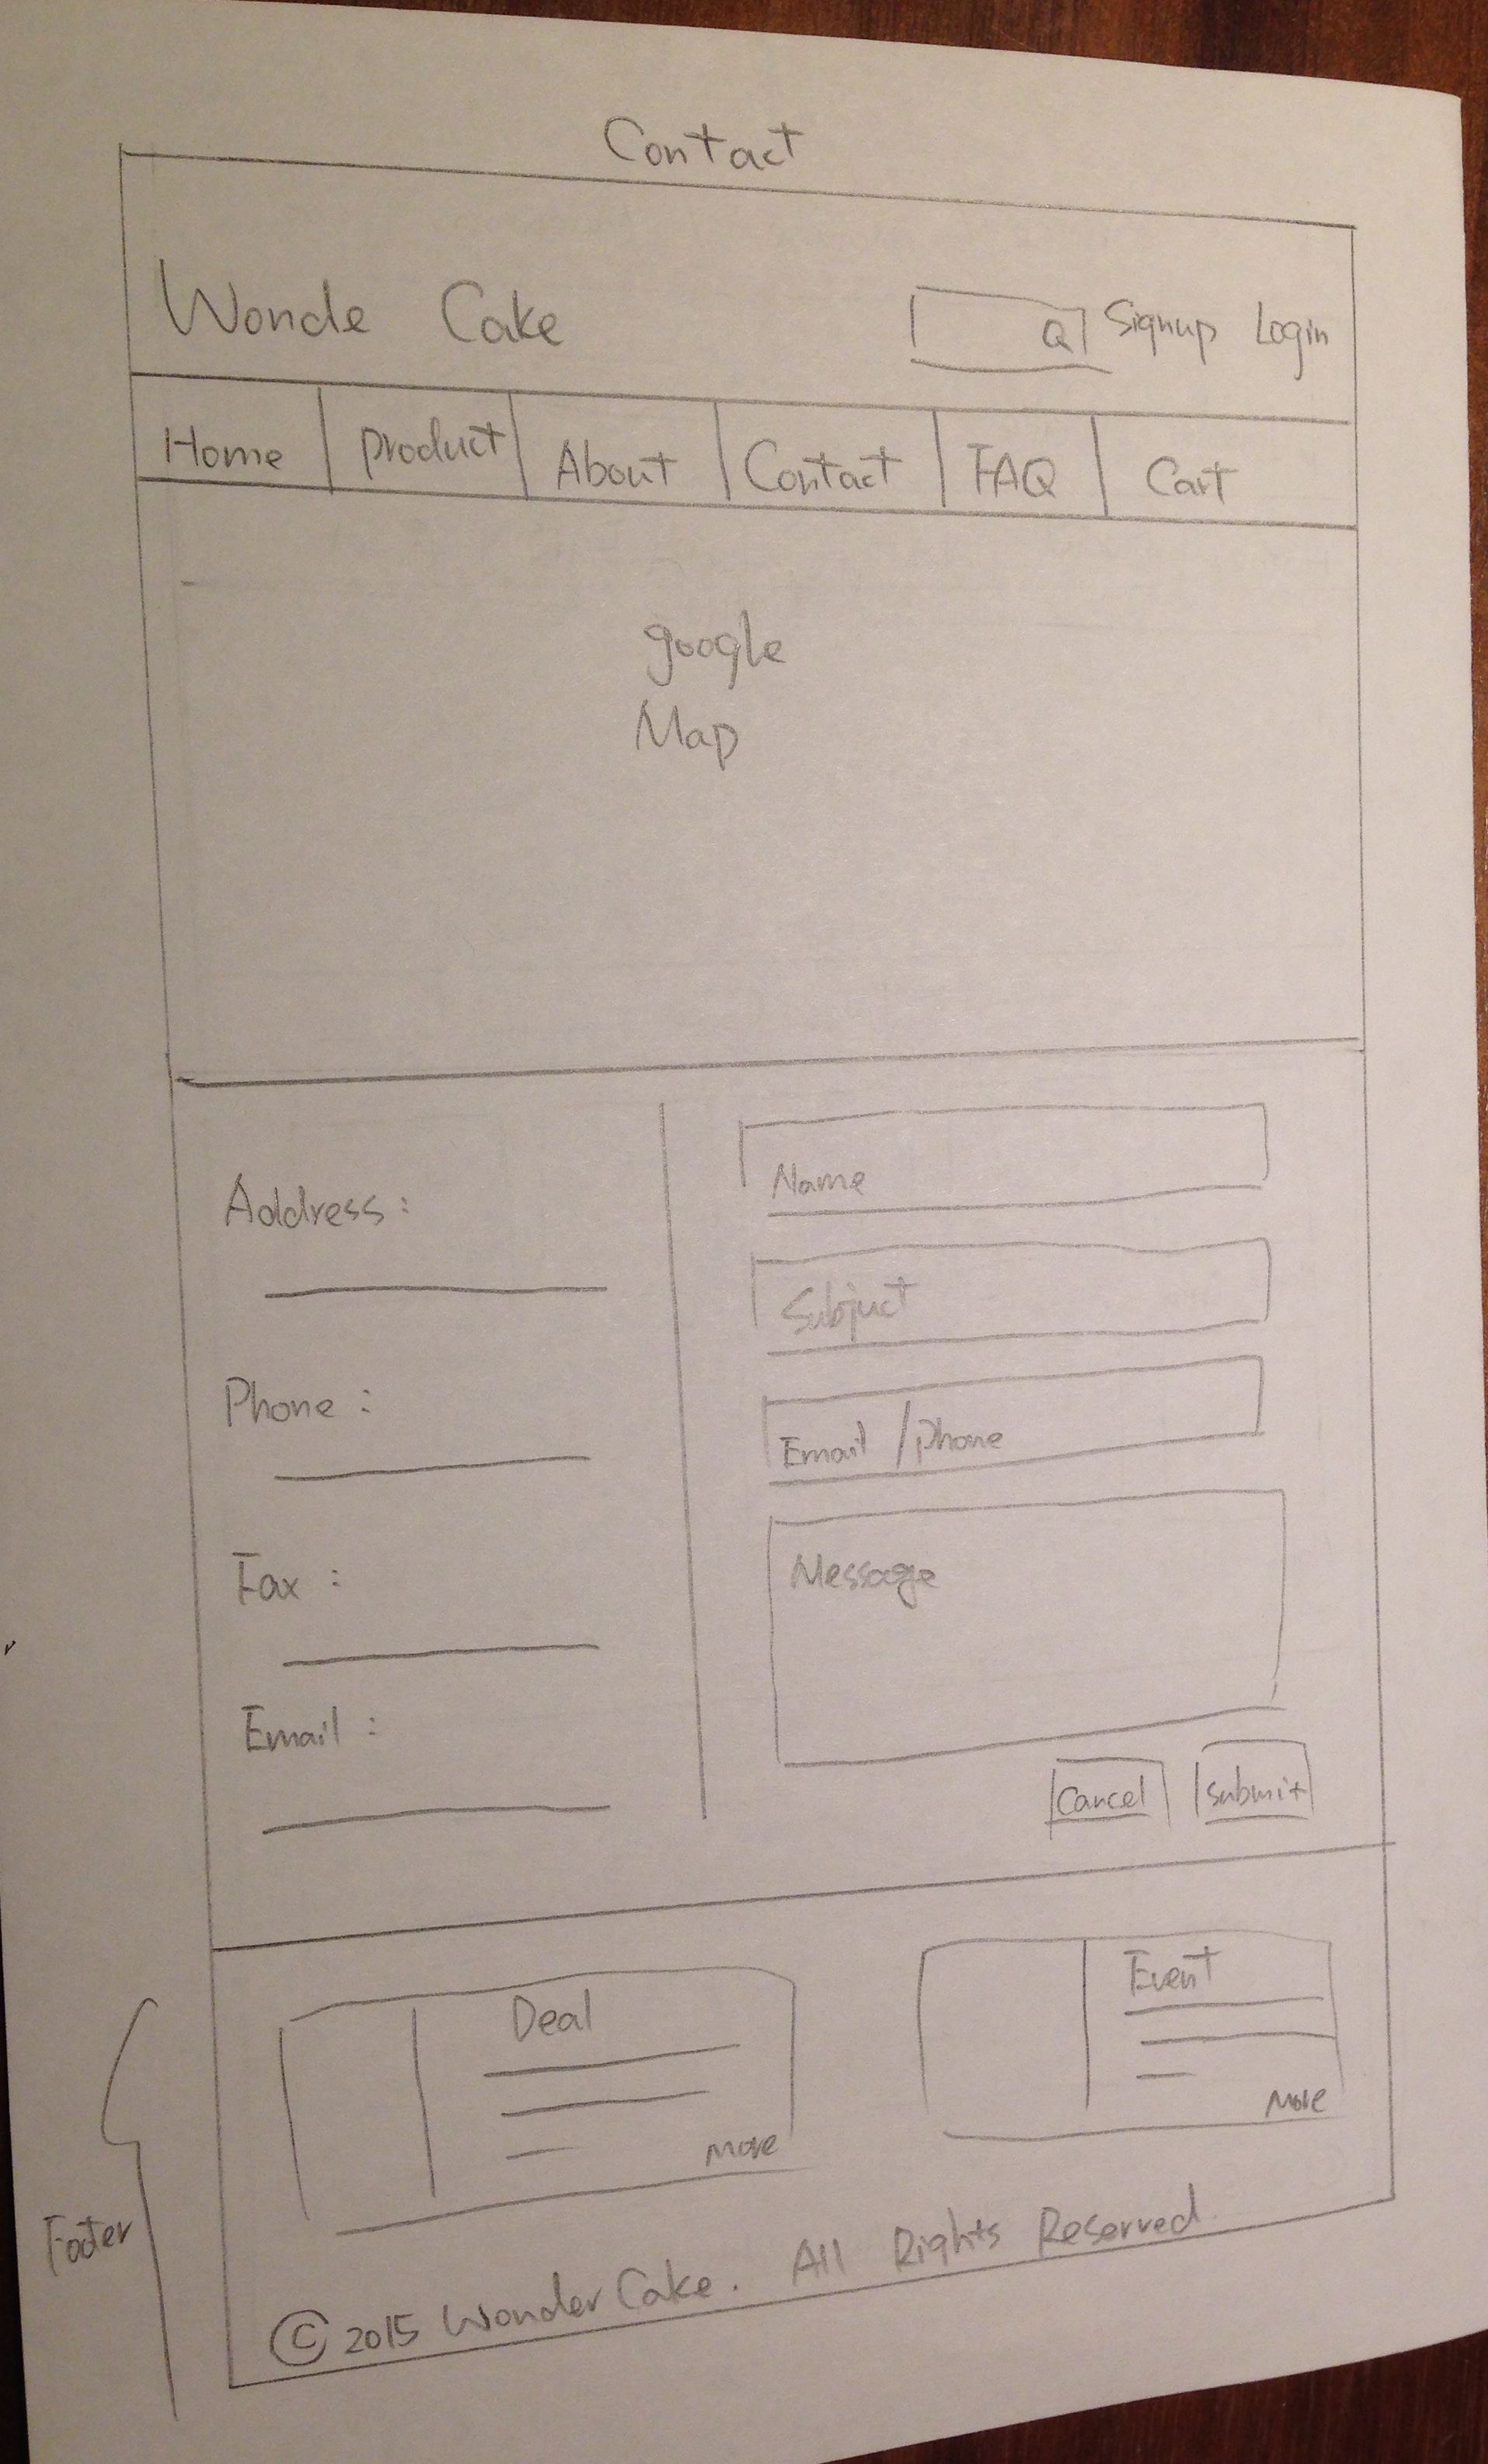 Contact
Wonde Cake
Signup Login
Home Product About Contact FAQ Cart
google
Map
Address :
Name
Subject
Phone :
Email / Phone
Fax :
Message
Email :
Cancel Submit
Deal
More
Event
More
Footer
© 2015 Wonder Cake. All Rights Reserved.